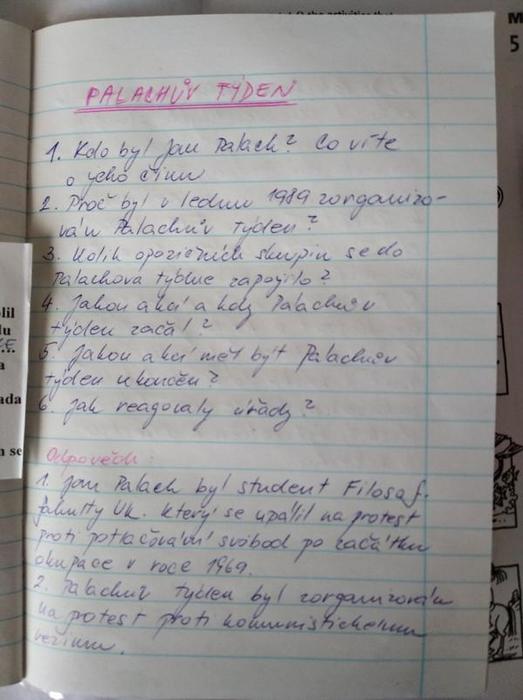 PALACHŮV TÝDEN
1. Kdo byl Jan Palach? Co víte
o jeho činu
2. Proč byl v lednu 1989 zorganizo-
ván Palachův týden?
3. Kolik opozičních skupin se do
Palachova týdne zapojilo?
4. Jakou akcí a kdy Palachův
týden začal?
5. Jakou akcí měl být Palachův
týden ukončen?
6. Jak reagovaly úřady?
Odpovědi:
1. Jan Palach byl student Filosof.
fakulty UK. který se upálil na protest
proti potlačování svobod po začátku
okupace v roce 1969.
2. Palachův týden byl zorganizován
na protest proti komunistickému
režimu.
lil
lu
a
ada
se
M
5